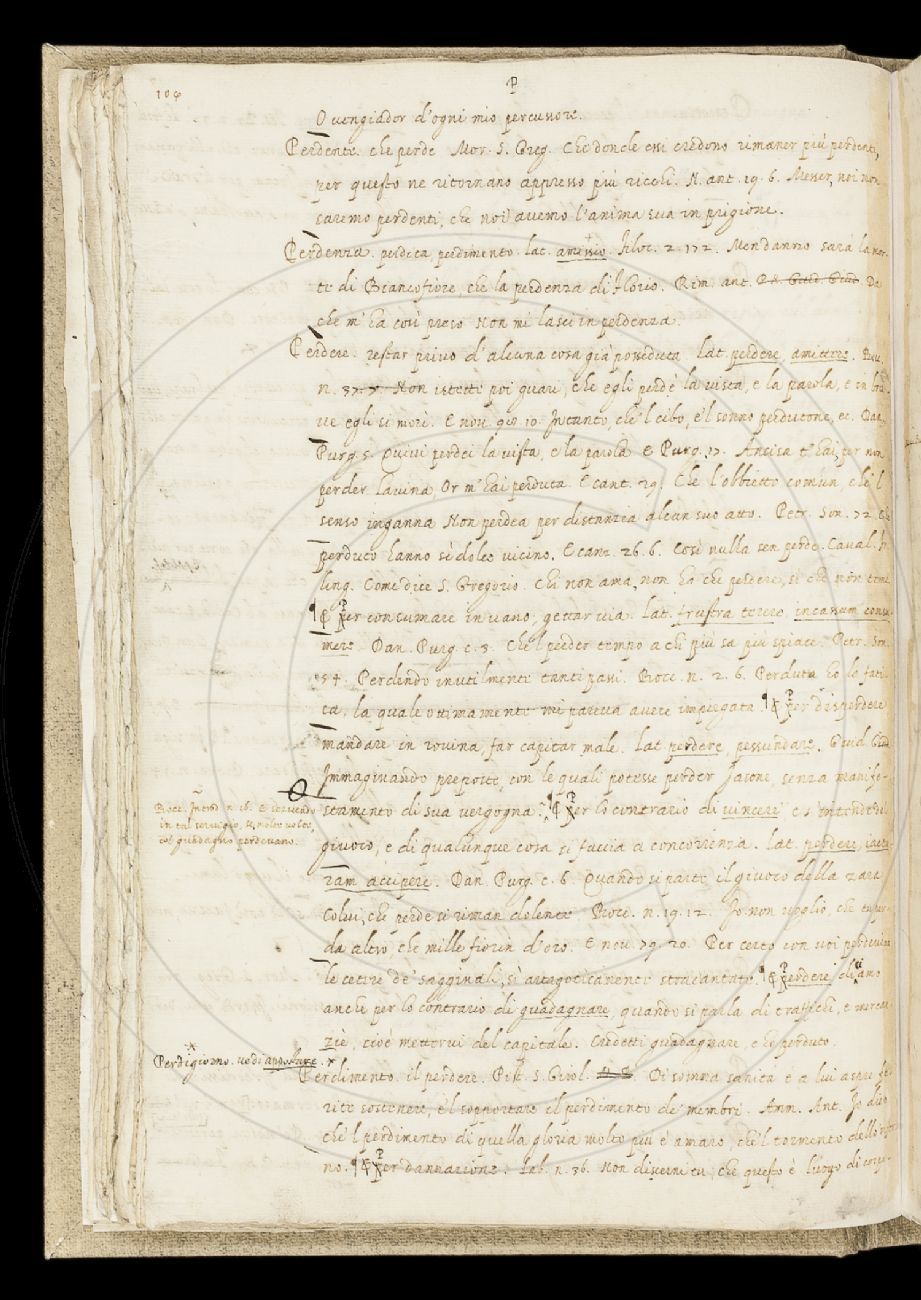 104
P
O vengiador d'ogni mio percussore.
Perdente. che perde Mor. S. Greg. Che donde essi credono rimaner più perdenti,
per questo ne ritornano appresso più ricchi. N. ant. 19. 6. Messer, noi non
saremo perdenti, che noi avemo l'anima sua in prigione.
Perdenza. perdita, perdimento. lat. amissio. filoc. 2. 172. Men danno sarà la mor-
te di Biancofiore, che la perdenza di florio. Rim. ant. Da
che m'ha così preso Non mi lasci in perdenza.
Perdere. restar privo d'alcuna cosa già posseduta Lat. perdere, amittere. Bocc.
n. 37. 7. Non istette poi guari, che egli perdè la vista, e la parola, e in brie-
ve egli si morì. E nov. 98. 10. Intanto, che 'l cibo, e 'l sonno perdutone, ec. Dan.
Purg. 5. Quivi perdei la vista, e la parola E Purg. 17. Ancisa t'hai, per non
perder Lavina, Or m'hai perduta. E cant. 29. Che l'obbietto comun, che 'l
senso inganna Non perdea per distanzia alcun suo atto. Petr. Son. 72. Che
perduto hanno sì dolce vicino. E canz. 26. 6. Così nulla sen perde. Caval. fr.
ling. Come dice S. Gregorio. Chi non ama, non ha che perdere, sì che non teme.
¶ per consumare in vano, gettar via. Lat. frustra terere, incassum consu-
mere. Dan. Purg. c. 3. Che 'l perder tempo a chi più sa più spiace. Petr. Son.
54. Perdendo inutilmente tanti passi. Bocc. n. 2. 6. Perduta ho la fati-
ca, la quale ottimamente mi pareva avere impiegata. ¶ per disperdere
mandare in rovina, far capitar male. Lat perdere, pessundare. Guid. Giud.
Immaginando preposte, con le quali potesse perder Jasone, senza manife-
stamento di sua vergogna. ¶ per lo contrario di vincere e s'intende di
giuoco, e di qualunque cosa si faccia a concorrenza. Lat. perdere, iactu-
ram accipere. Dan Purg. c. 6. Quando si parte il giuoco della zara
Colui, che perde si riman dolente Bocc. n. 19. 12. Io non voglio, che tu per-
da altro, che mille fiorin d'oro. E nov. 79. 20. Per certo con voi perderieno
le cetere de' sagginali, sì artagoticamente stracantate. ¶ perdere diciamo
anche per lo contrario di guadagnare, quando si parla di traffichi, e mercan-
zie, cioè mettervi del capitale. Credetti guadagnare, e ho perduto.
Perdimento. il perdere. Pist. S. Girol. Di somma sanità è a lui aspre fe-
rite sostenere, e 'l sopportare il perdimento de' membri. Amm. Ant. Io dico
che 'l perdimento di quella gloria molto più è amaro, che 'l tormento dello infer-
no. ¶ per dannazione. Lab. n. 36. Non discerni tu, che questo è luogo di corpo-
Bocc. Introd. n. 16. E servendo
in tal servigio, se, molte volte,
col guadagno perdevano.
Perdigiorno. vedi apostare.